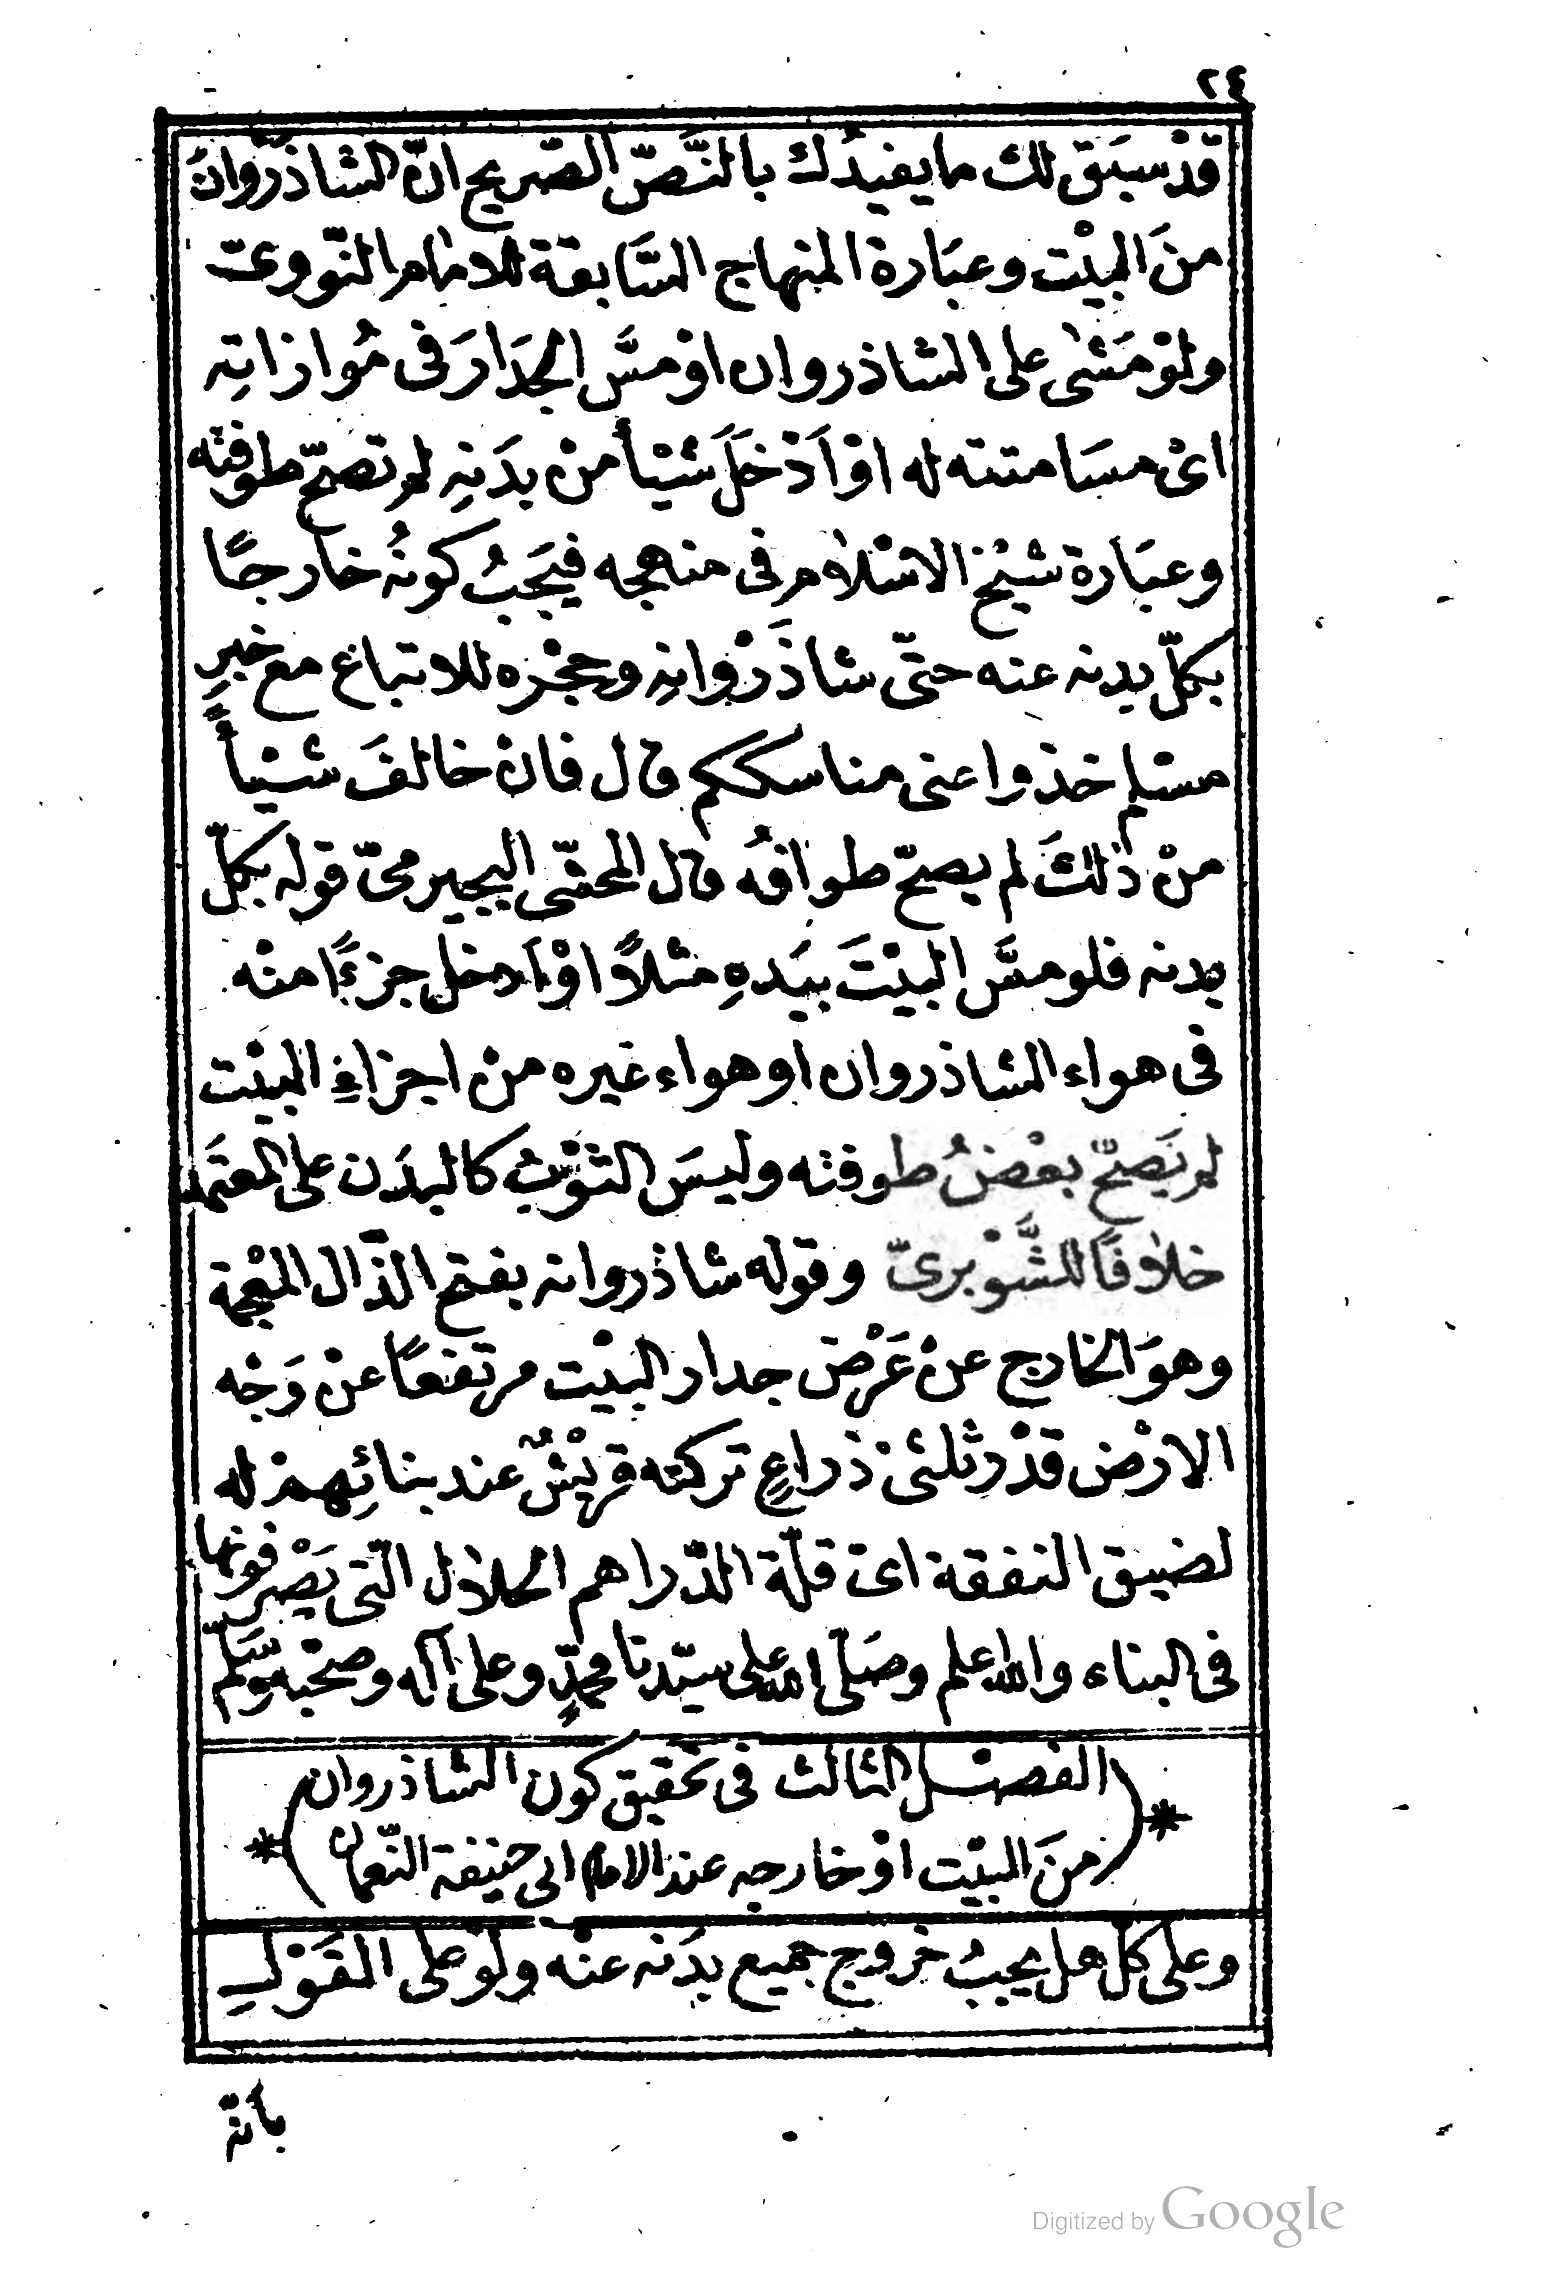 ٢٤
قدْ سبَق لك ما يفيدُك بالنَّصّ الصّريح انّ الشاذرْوانَ
منَ البيْت وعبَارة المنهاج السَّابقة للامام النّووىّ
ولوْ مَشٰى على الشاذروان اوْ مسَّ الجدَارَ فى مُوازاتِه
اىْ مسَامتته له اوْ اَدْخلَ شيْأً منْ بدَنِه لم تصحّ طوفته
وعبَارة شيْخ الاسْلام فى منهجه فيَجبُ كونُه خارجًا
بكلّ بدنه عنه حتّى شاذَرْوانِه وحجْره للاتباع مع خبرِ
مسْلم خذوا عنى مناسككم قال فانْ خالفَ شيْأً
منْ ذٰلكَ لم يصحّ طوافُه قال المحشّى البجيرمىّ قوله بكلّ
بدنه فلو مسَّ البيْتَ بيَدهِ مثلاً اوْ اَدخل جزءًا منْه
فى هواء الشاذروان او هواء غيره منْ اجزاءِ البيْت
لم يَصحّ بعْضُ طوفته وليسَ الثوْبُ كالبدَن على المعتَمد
خلافًا للشَّوْبرىّ وقوله شاذروانه بفتح الذّال المعْجمة
وهوَ الخارج عنْ عَرْض جدار البيْت مرتفعًا عنْ وَجْه
الارْض قدْرَ ثلثىْ ذراعٍ تركته قريْشٌ عند بنائِهمْ له
لضيق النفقة اىْ قلّة الدّراهم الحلال التّى يَصْرفونها
فى البناء والله اعلم وصَلّى الله على سيّدنا محمّدٍ وعلى آله وصحْبه وسَلّم
* (الفصْل الثالث فى تحقيق كون الشاذروان
منَ البيْت اوْ خارجه عند الامام ابى حنيفة النّعمان) *
وعلى كلّ هل يجبُ خروج جميع بدَنه عنْه ولوْ على القَوْلِ
بأنّه
Digitized by Google